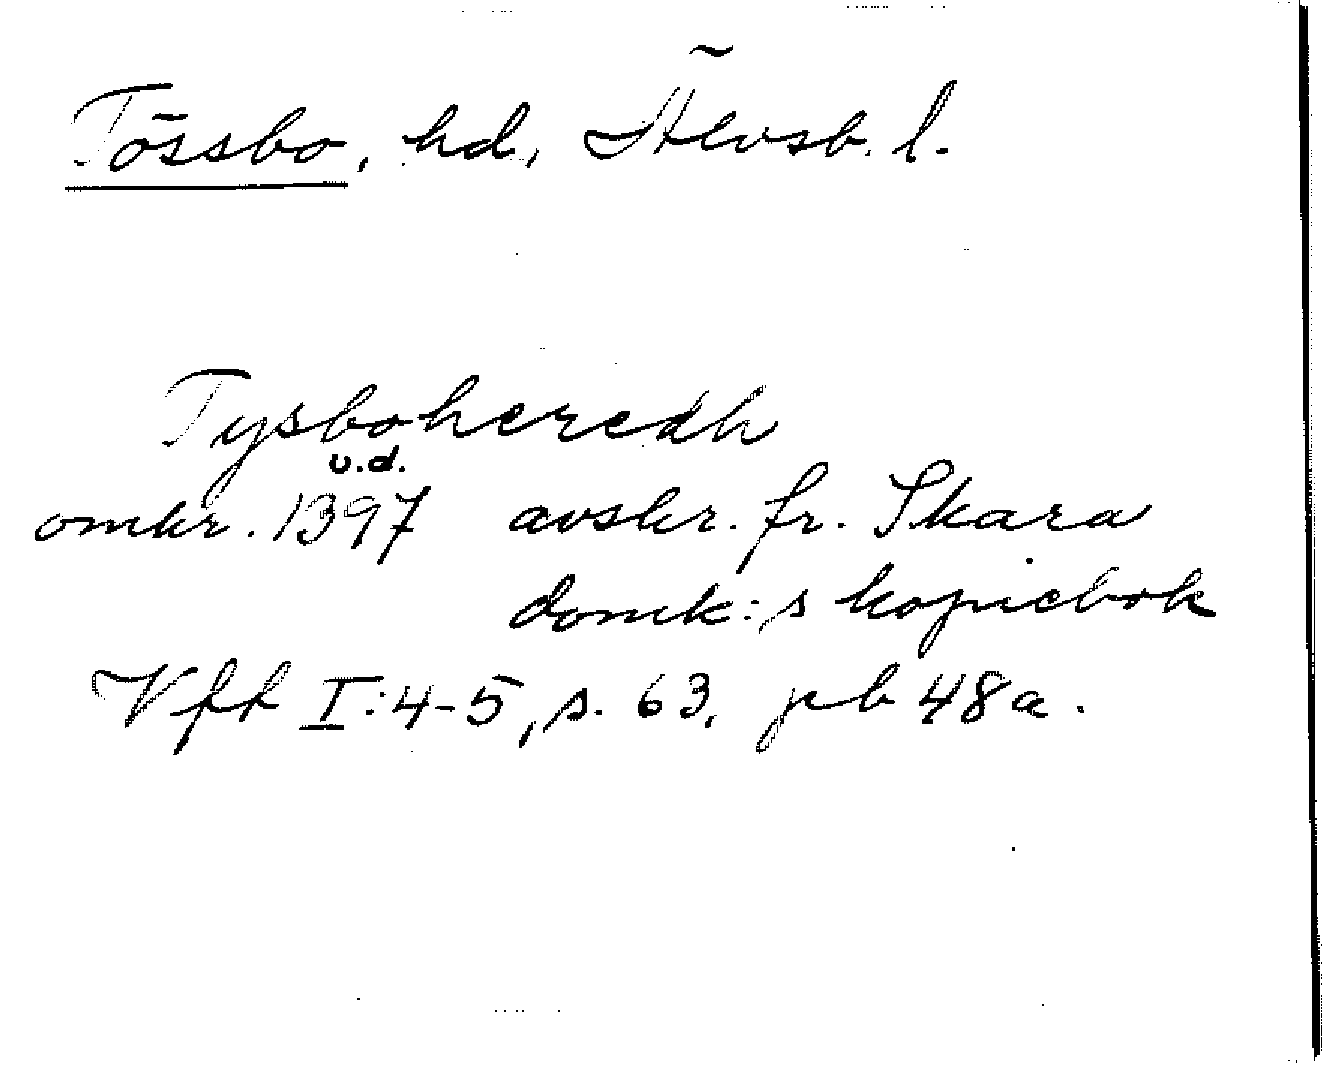 Tössbo, hd, Älvsb. l.
Tysboheredh
u.d.
omkr. 1397 avskr. fr. Skara
domk:s kopiebok
Vfft I:4-5, s. 63, pb 48a.